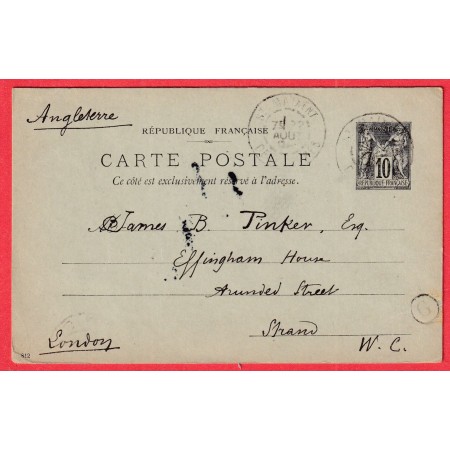 Angleterre
RÉPUBLIQUE FRANÇAISE
CARTE POSTALE
Ce côté est exclusivement réservé à l'adresse.
AOUT
10
REPUBLIQUE FRANÇAISE
James B. Pinker, Esq.
Effingham House
Arundel Street
Strand
London
W. C.
812